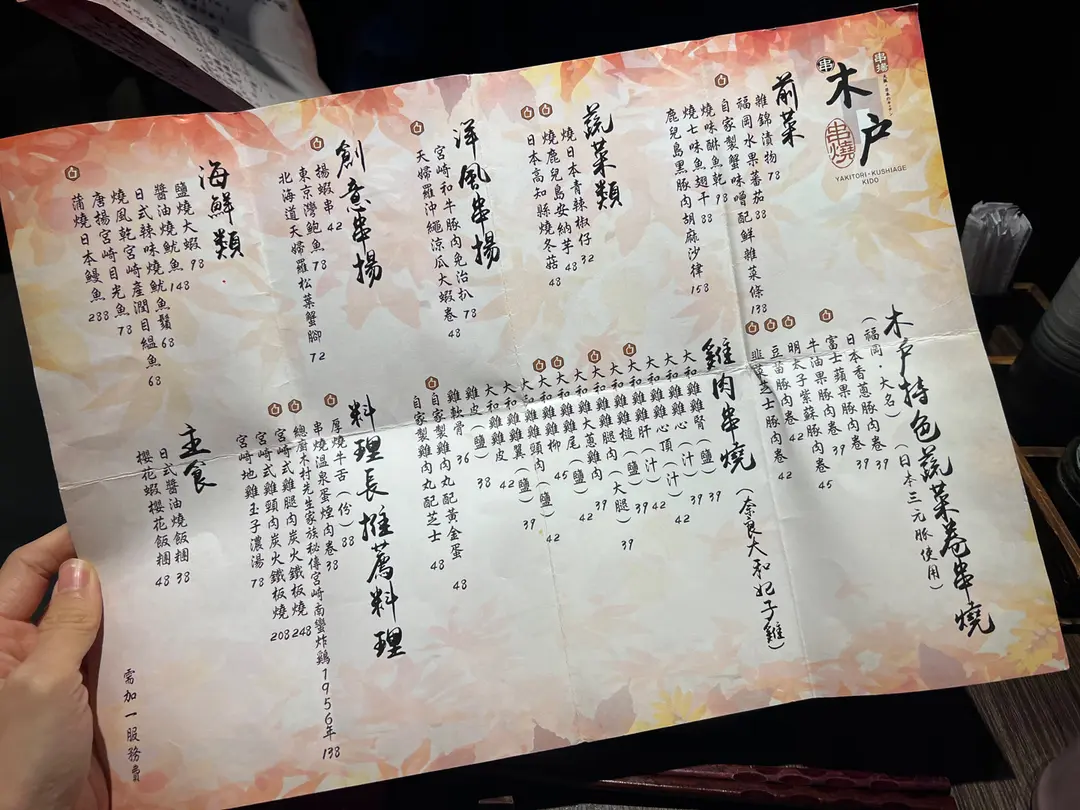 串
木户
串燒
串揚
YAKITORI・KUSHIAGE
KIDO
前菜
雜錦漬物 78
福岡水果蕃茄 88
自家製蟹味噌配鮮雜菜條 138
燒味醂魚乾 98
燒七味魚翅干 88
鹿兒島黑豚肉胡麻沙律 158
蔬菜類
燒日本青辣椒仔 32
燒鹿兒島安納芋 48
日本高知縣燒冬菇 48
洋風串揚
宮崎和牛豚肉免治扒 78
天婦羅沖繩涼瓜大蝦卷 48
創意串揚
揚蝦串 42
東京灣鮑魚 78
北海道天婦羅松葉蟹腳 72
海鮮類
鹽燒大蝦 98
醬油燒魷魚 148
日式辣味燒魷魚鬚 68
燒風乾宮崎產潤目鰮魚 68
唐揚宮崎目光魚 78
蒲燒日本鰻魚 288
木户特色蔬菜卷串燒
(福岡・大名) (日本三元豚使用)
日本香蔥豚肉卷 39
富士蘋果豚肉卷 39
牛油果豚肉卷 45
明太子紫蘇豚肉卷
豆苗豚肉卷 42
韮菜芝士豚肉卷 42
雞肉串燒 (奈良大和妃子雞)
大和雞腎 (鹽) 39
大和雞心 (汁) 39
大和雞心頂 (汁) 42
大和雞肝 (汁) 42
大和雞槌 (鹽) 39
大和雞腿肉 (大腿) 39
大和大蔥雞肉 39
大和雞尾 (鹽) 42
大和雞柳 45
大和雞頸肉 (鹽) 42
大和雞翼 (鹽) 39
大和雞皮 42
雞皮 (鹽) 38
雞軟骨 36
自家製雞肉丸配黃金蛋 48
自家製雞肉丸配芝士 48
料理長推薦料理
厚燒牛舌 (份) 88
串燒溫泉蛋煙肉卷 38
總廚木村先生家族秘傳宮崎南蠻炸鷄1956年 138
宮崎式雞腿肉炭火鐵板燒 248
宮崎式雞頸肉炭火鐵板燒 208
宮崎地雞玉子濃湯 78
主食
日式醬油燒飯糰 38
櫻花蝦櫻花飯糰 48
需加一服務費